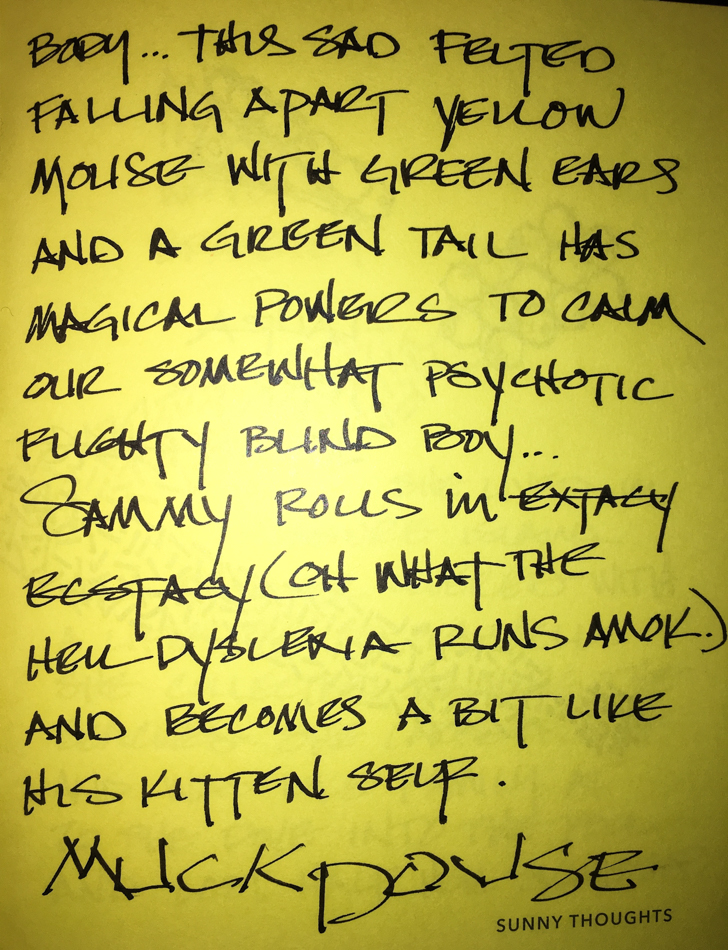 BODY... THIS SAD FELTED
FALLING APART YELLOW
MOUSE WITH GREEN EARS
AND A GREEN TAIL HAS
MAGICAL POWERS TO CALM
OUR SOMEWHAT PSYCHOTIC
FLIGHTY BLIND BOY...
SAMMY ROLLS in EXTACY
ECSTACY (OH WHAT THE
HELL DYSLEXIA RUNS AMOK.)
AND BECOMES A BIT LIKE
HIS KITTEN SELF.
MUCKDOUSE
SUNNY THOUGHTS